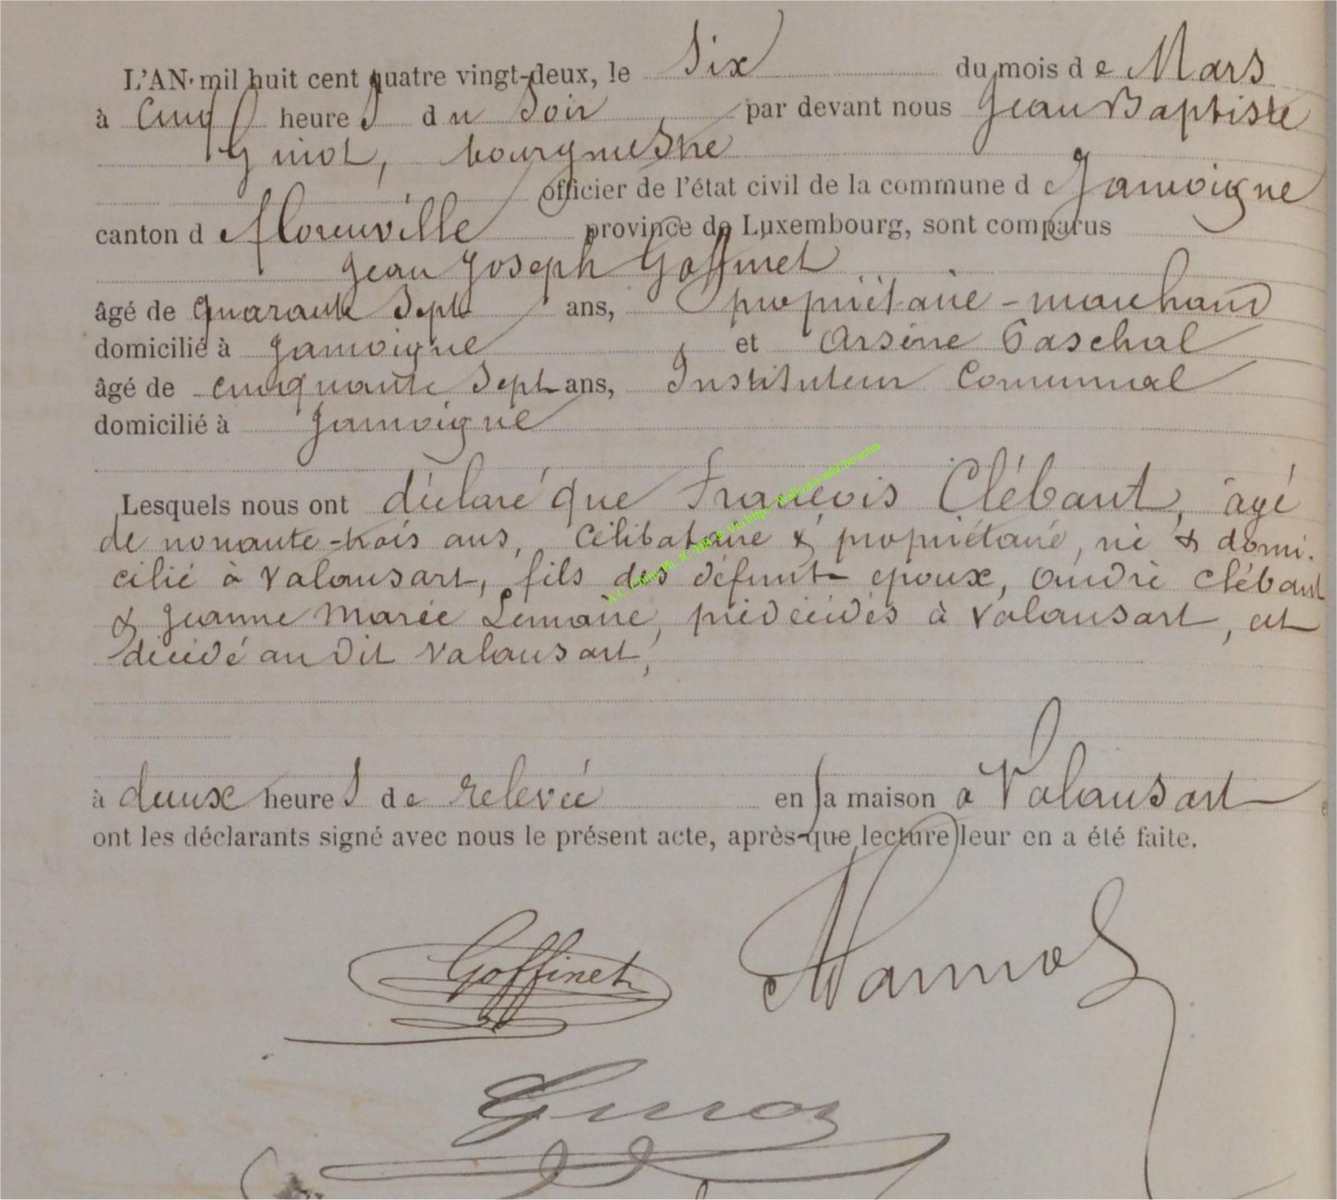 L'AN mil huit cent quatre vingt-deux, le Six du mois de Mars
à Cinq heures du Soir par devant nous Jean Baptiste
Guiot, bourgmestre
officier de l'état civil de la commune de Jamoigne
canton d e florenville province de Luxembourg, sont comparus
Jean Joseph Goffinet
âgé de quarante Sept ans, propriétaire - marchand
domicilié à Jamoigne et Arsène Paschal
âgé de cinquante Sept ans, Instituteur Communal
domicilié à Jamoigne
Lesquels nous ont déclaré que François Clébant, âgé
de nonante-trois ans, célibataire & propriétaire, né & domi-
cilié à Valansart, fils des défunt époux, André Clébant
& Jeanne Marie Lemaire, prédécédés à Valansart, est
décédé au dit Valansart,
à deux heures de relevée en sa maison à Valansart
ont les déclarants signé avec nous le présent acte, après que lecture leur en a été faite.
Goffinet
Guiot